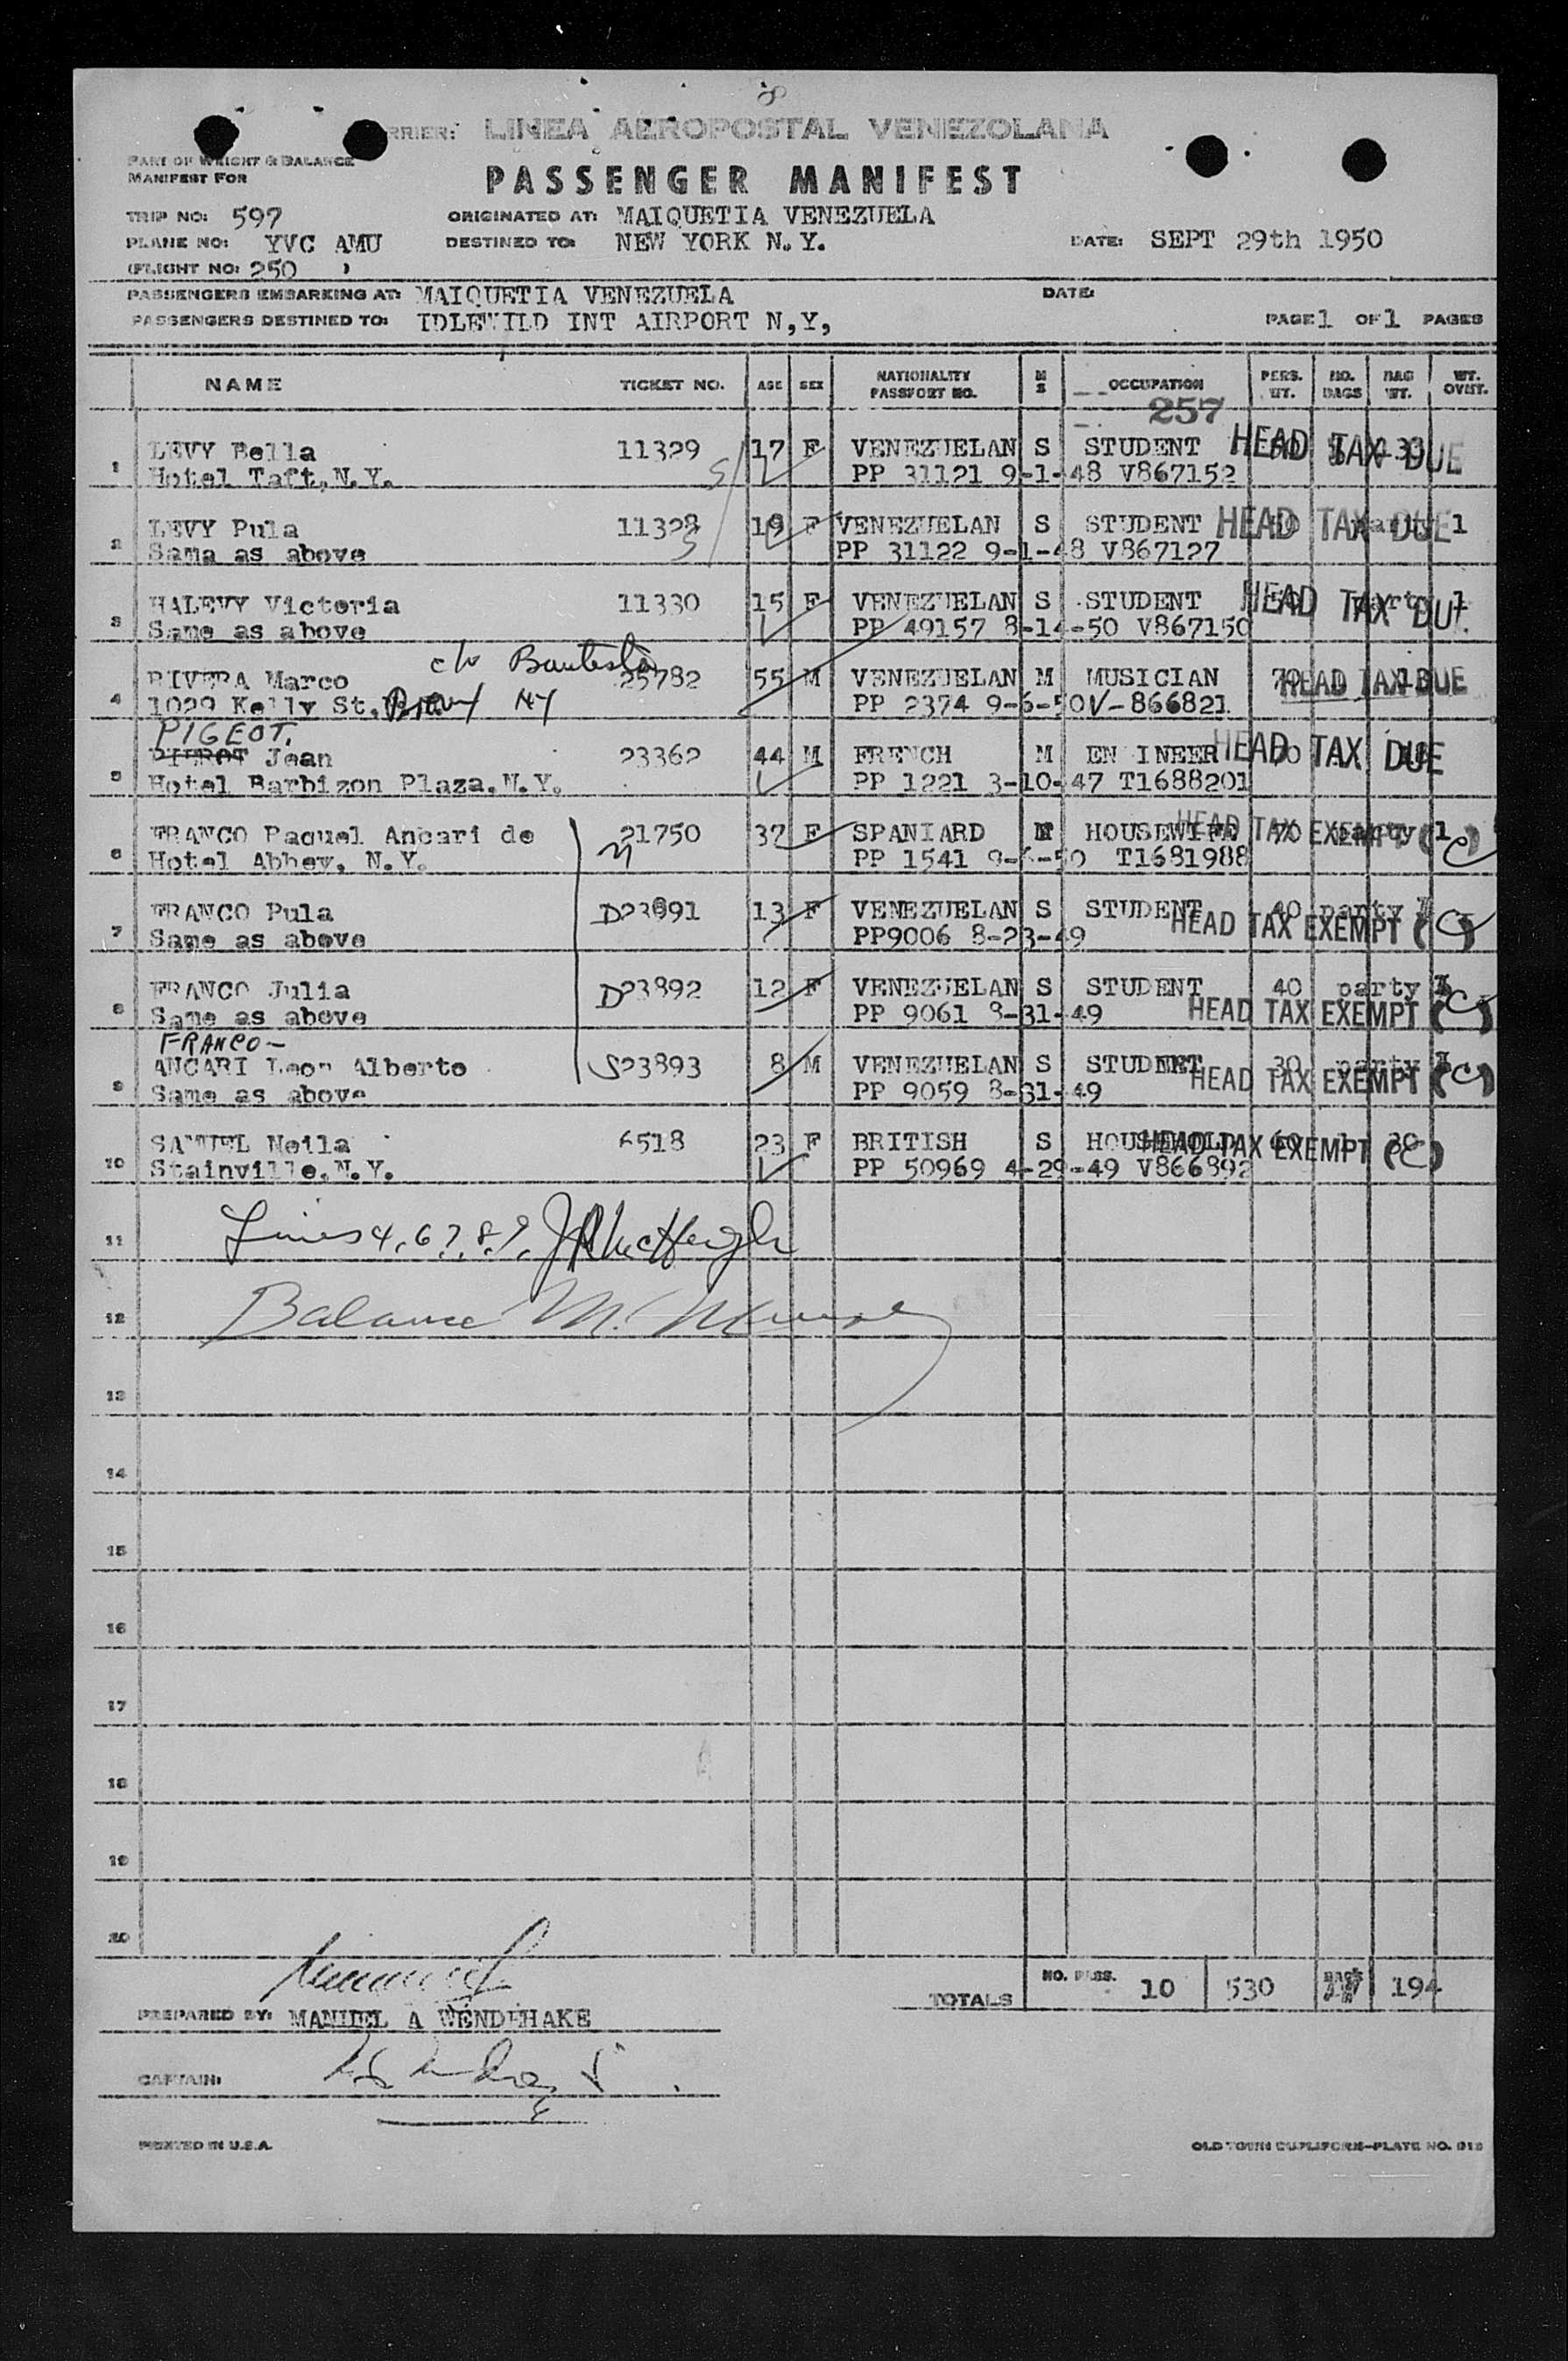 8
RRIER: LINEA AEROPOSTAL VENEZOLANA
PART OF WEIGHT & BALANCE
MANIFEST FOR
PASSENGER MANIFEST
TRIP NO: 597 ORIGINATED AT: MAIQUETIA VENEZUELA
PLANE NO: YVC AMU DESTINED TO: NEW YORK N.Y. DATE: SEPT 29th 1950
(FLIGHT NO: 250 )
PASSENGERS EMBARKING AT: MAIQUETIA VENEZUELA DATE:
PASSENGERS DESTINED TO: IDLEWILD INT AIRPORT N,Y, PAGE 1 OF 1 PAGES
NAME TICKET NO. AGE SEX NATIONALITY PASSPORT NO. M S OCCUPATION PERS. WT. NO. BAGS BAG WT. WT. OVWT.
257
LEVY Bella 11329 17 F VENEZUELAN S STUDENT HEAD TAX DUE
1 Hotel Taft,N.Y. PP 31121 9-1-48 V867152
LEVY Pula 11328 19 F VENEZUELAN S STUDENT HEAD TAX DUE 1
2 Sama as above PP 31122 9-1-48 V867127
HALEVY Victoria 11330 15 F VENEZUELAN S STUDENT HEAD TAX DUE 1
3 Same as above PP 49157 8-14-50 V867150
c/o Bautista
RIVERA Marco 25782 55 M VENEZUELAN M MUSICIAN 70 HEAD TAX DUE
4 1029 Kelly St. Bronx NY PP 2374 9-6-50 V-866821
PIGEOT.
PIEROT Jean 23362 44 M FRENCH M EN INEER HEAD TAX DUE
5 Hotel Barbizon Plaza.N.Y. PP 1221 3-10-47 T1688201
FRANCO Raquel Ancari de 21750 37 F SPANIARD M HOUSEWIFE 70 party 1 HEAD TAX EXEMPT (C)
6 Hotel Abbey, N.Y. PP 1541 9-6-50 T1681988
FRANCO Pula D23891 13 F VENEZUELAN S STUDENT 40 party 1
7 Same as above PP9006 8-23-49 HEAD TAX EXEMPT (C)
FRANCO Julia D23892 12 F VENEZUELAN S STUDENT 40 party 1
8 Same as above PP 9061 8-31-49 HEAD TAX EXEMPT (C)
FRANCO-
ANCARI Leon Alberto S23893 8 M VENEZUELAN S STUDENT 30 party 1 HEAD TAX EXEMPT (C)
9 Same as above PP 9059 8-31-49
SAMUEL Neila 6518 23 F BRITISH S HOUSEHOLD 60 1 30 HEAD TAX EXEMPT (C)
10 Stainville,N.Y. PP 50969 4-29-49 V866892
11 Lines 4, 6 7, 8, 9,
12 Balance M.
13
14
15
16
17
18
19
20
TOTALS NO. PASS. 10 530 BAGS 194
PREPARED BY: MANUEL A WENDEHAKE
CAPTAIN:
PRINTED IN U.S.A. OLD TOWN DUPLIFORM-PLATE NO.